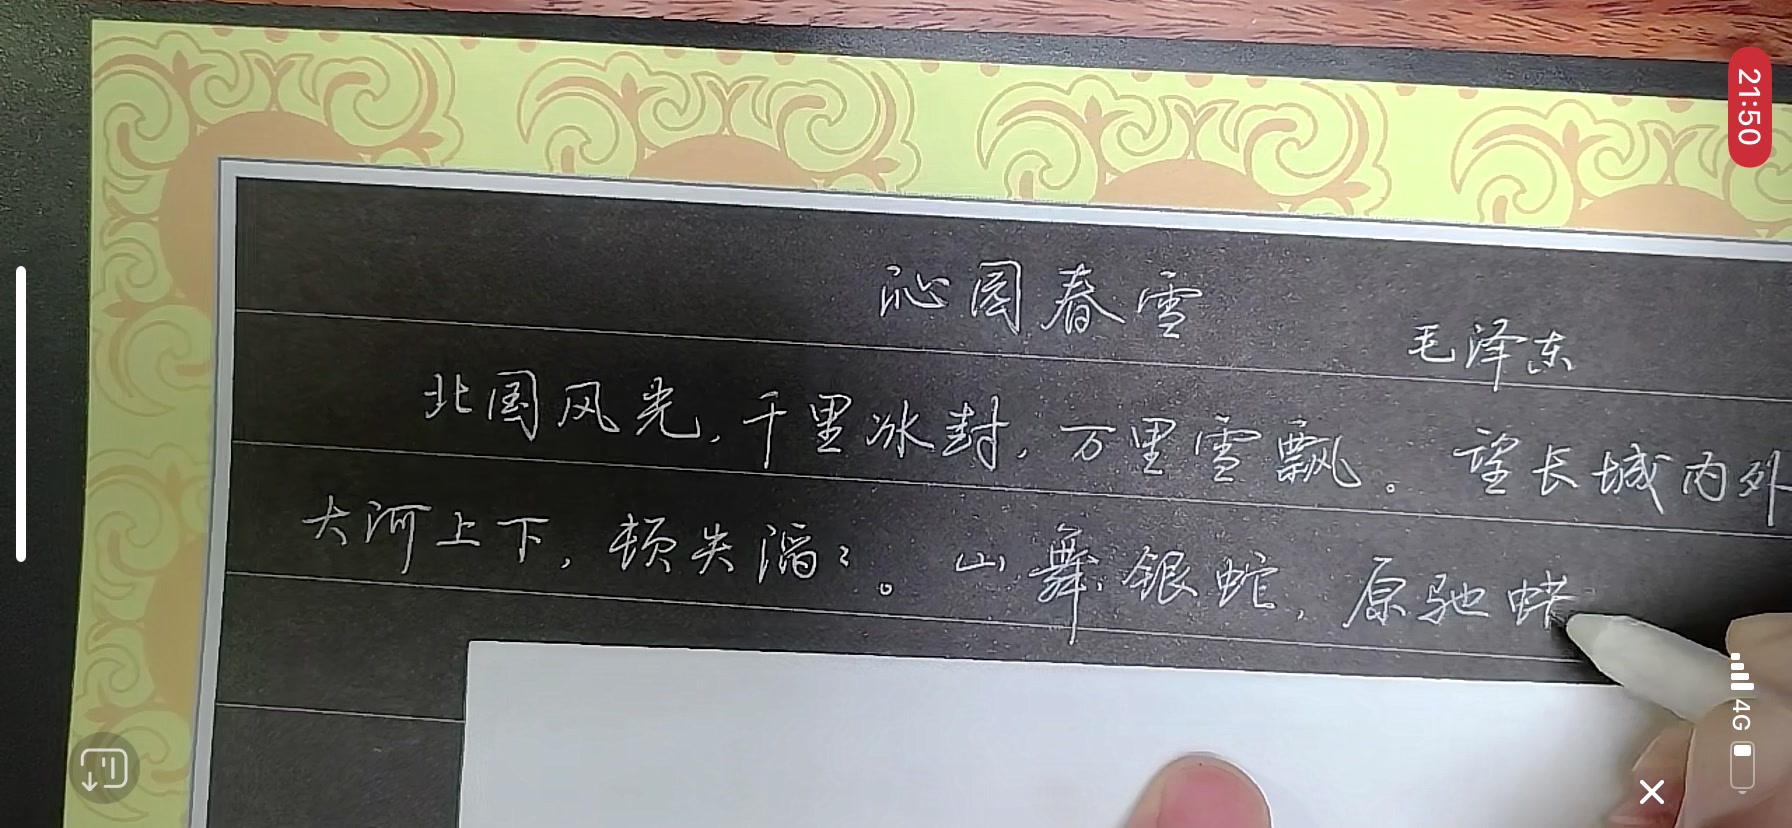 沁园春雪
毛泽东
北国风光,千里冰封,万里雪飘。望长城内外
大河上下,顿失滔〻。山舞银蛇,原驰蜡
21:50
4G